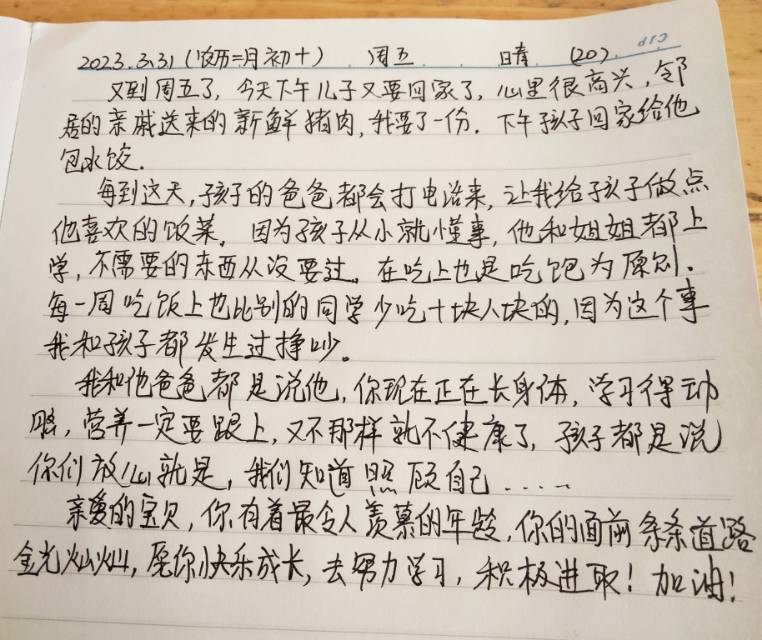 2023.3.31(农历二月初十) 周五 晴 (20)
又到周五了,今天下午儿子又要回家了,心里很高兴,邻
居的亲戚送来的新鲜猪肉,我要了一份.下午孩子回家给他
包水饺.
每到这天,孩子的爸爸都会打电话来,让我给孩子做点
他喜欢的饭菜,因为孩子从小就懂事,他和姐姐都上
学,不需要的东西从没要过.在吃上也是吃饱为原则.
每一周吃饭上也比别的同学少吃十块八块的,因为这个事
我和孩子都发生过挣吵。
我和他爸爸都是说他,你现在正在长身体,学习得动
脑,营养一定要跟上,又不那样就不健康了,孩子都是说
你们放心就是,我们知道照顾自己......
亲爱的宝贝,你有着最令人羡慕的年龄,你的面前条条道路
金光灿灿,愿你快乐成长,去努力学习,积极进取!加油!